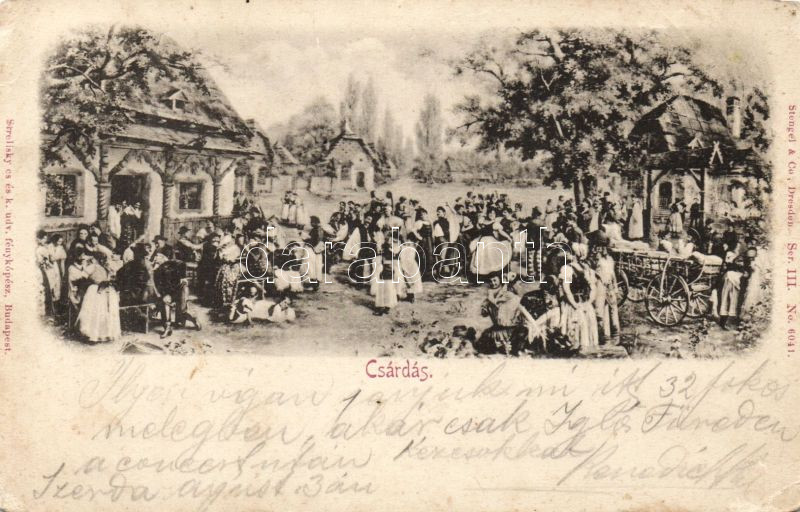 Strelisky cs és k. udv. fényképész, Budapest.
Stengel & Co., Dresden. Ser III. No. 6041.
darabanth
Csárdás.
Ilyen vigan járjuk mi itt 32 fokos
melegben, akár csak Igló Füreden
a concert után Kézcsókkal
Szerda august. 3án